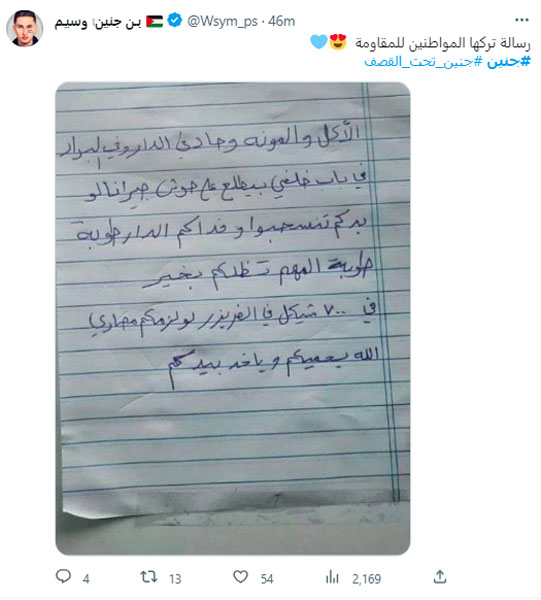 وسيم ابن جنين 🇵🇸 @Wsym_ps · 46m
رسالة تركها المواطنين للمقاومة 😍💙
#جنين #جنين_تحت_القصف
الأكل والمونه وجاي الدار وفي البراد
في باب خلفي بيطلع ع حوش جيرانا لو
بدكم تنسحبوا وفداكم الدار طوبة
طوبة المهم تظلكم بخير
في ٧٠٠ شيكل في الفريزر لو لزمكم مصاري
الله يحميكم وياخد بيدكم
4 13 54 2,169